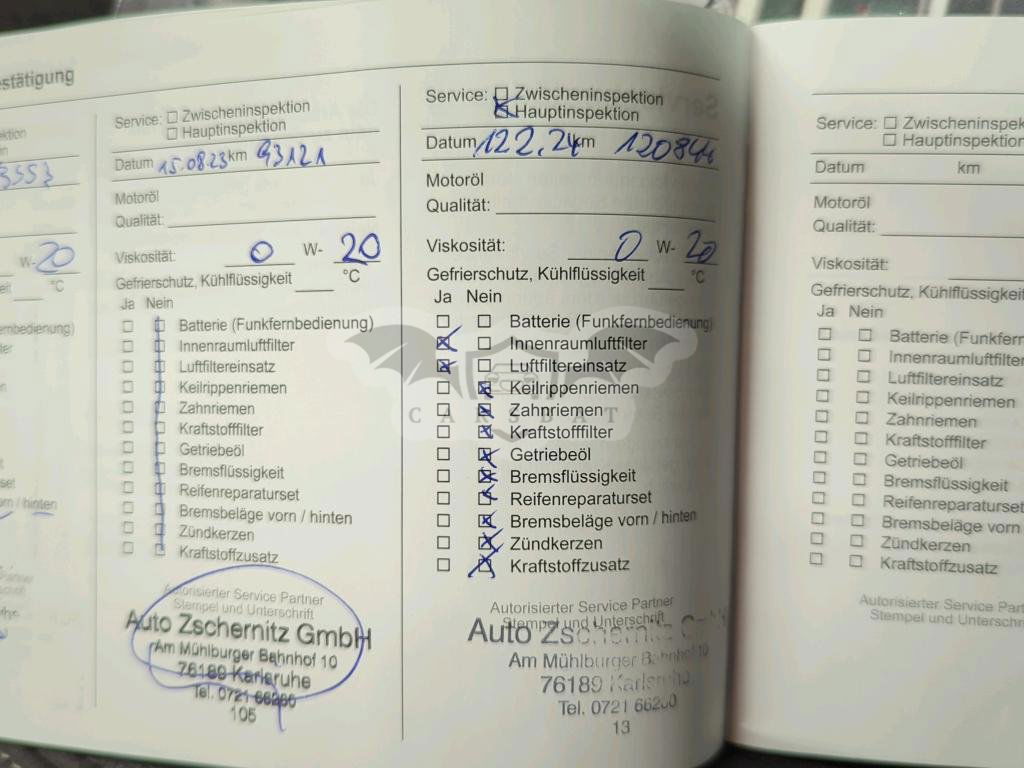 estätigung
Service: Zwischeninspektion
Hauptinspektion
Datum 15.08.23 km 93121
Motoröl
Qualität:
Viskosität: 0 W- 20
Gefrierschutz, Kühlflüssigkeit °C
Ja Nein
Batterie (Funkfernbedienung)
Innenraumluftfilter
Luftfiltereinsatz
Keilrippenriemen
Zahnriemen
Kraftstofffilter
Getriebeöl
Bremsflüssigkeit
Reifenreparaturset
Bremsbeläge vorn / hinten
Zündkerzen
Kraftstoffzusatz
Autorisierter Service Partner
Stempel und Unterschrift
Auto Zschernitz GmbH
Am Mühlburger Bahnhof 10
76189 Karlsruhe
Tel. 0721 66260
105
Service: Zwischeninspektion
Hauptinspektion
Datum 122.24 km
Motoröl
Qualität:
Viskosität: 0 W- 20
Gefrierschutz, Kühlflüssigkeit °C
Ja Nein
Batterie (Funkfernbedienung)
Innenraumluftfilter
Luftfiltereinsatz
Keilrippenriemen
Zahnriemen
Kraftstofffilter
Getriebeöl
Bremsflüssigkeit
Reifenreparaturset
Bremsbeläge vorn / hinten
Zündkerzen
Kraftstoffzusatz
Autorisierter Service Partner
Stempel und Unterschrift
Auto Zschernitz
Am Mühlburger Bahnhof 10
76189 Karlsruhe
Tel. 0721 66260
13
Service: Zwischeninspektion
Hauptinspektion
Datum km
Motoröl
Qualität:
Viskosität:
Gefrierschutz, Kühlflüssigkeit
Ja Nein
Batterie (Funkfern
Innenraumluftfilter
Luftfiltereinsatz
Keilrippenriemen
Zahnriemen
Kraftstofffilter
Getriebeöl
Bremsflüssigkeit
Reifenreparaturset
Bremsbeläge vorn
Zündkerzen
Kraftstoffzusatz
Autorisierter Service Partner
Stempel und Unterschrift
CARSBAT